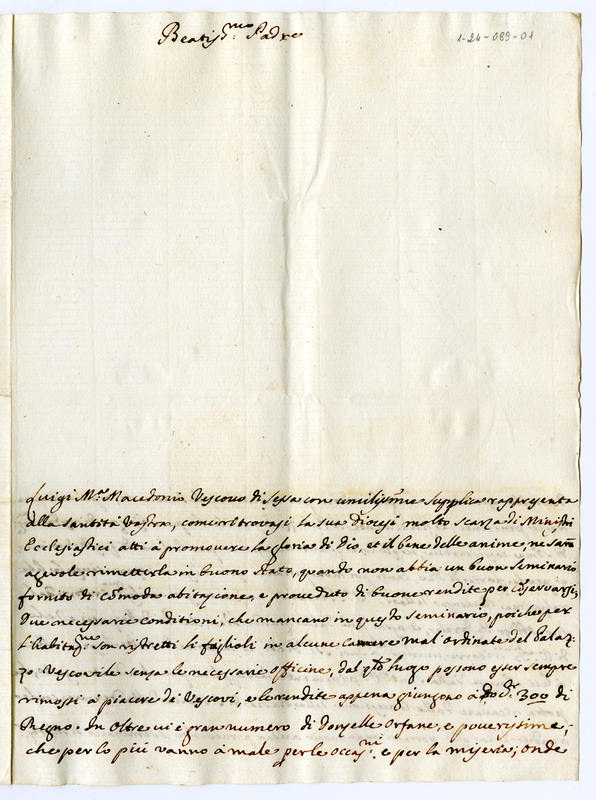 Beatiss.mo Padre
1-24-089-01
Luigi M.a Macedonio Vescovo di Sessa con umilissime suppliche rappresenta
alla Santità Vostra, come ritrovasi la sua Diocesi molto scarza di Ministri
Ecclesiastici atti à promovere la gloria di Dio, et il bene delle anime, ne sarà
agevole rimetterla in buono stato, quando non abbia un buon seminario
fornito di comoda abitazione, e proveduto di buone rendite per conservarsi,
Due necessarie conditioni, che mancano in questo seminario, poiche per
l'habitaz.ne son ristretti li figlioli in alcune camere mal ordinate del Palaz-
zo Vescovile senza le necessarie officine, dal q.le luogo possono esser sempre
rimossi à piacere de Vescovi, e le rendite appena giungono a D. 300 di
Regno. In oltre vi è gran numero di Donzelle Orfane, e poverissime,
che per lo più vanno à male per le occas.ni e per la miseria; onde